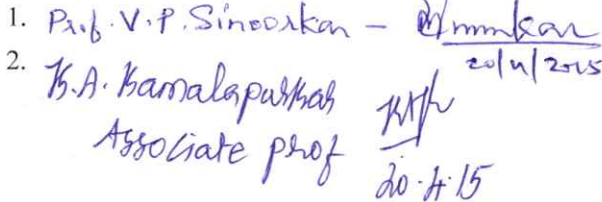 1. Prof. V. P. Sinoorkar –
20/4/2015
2. K. A. Kamalapurkar
Associate prof
20.4.15